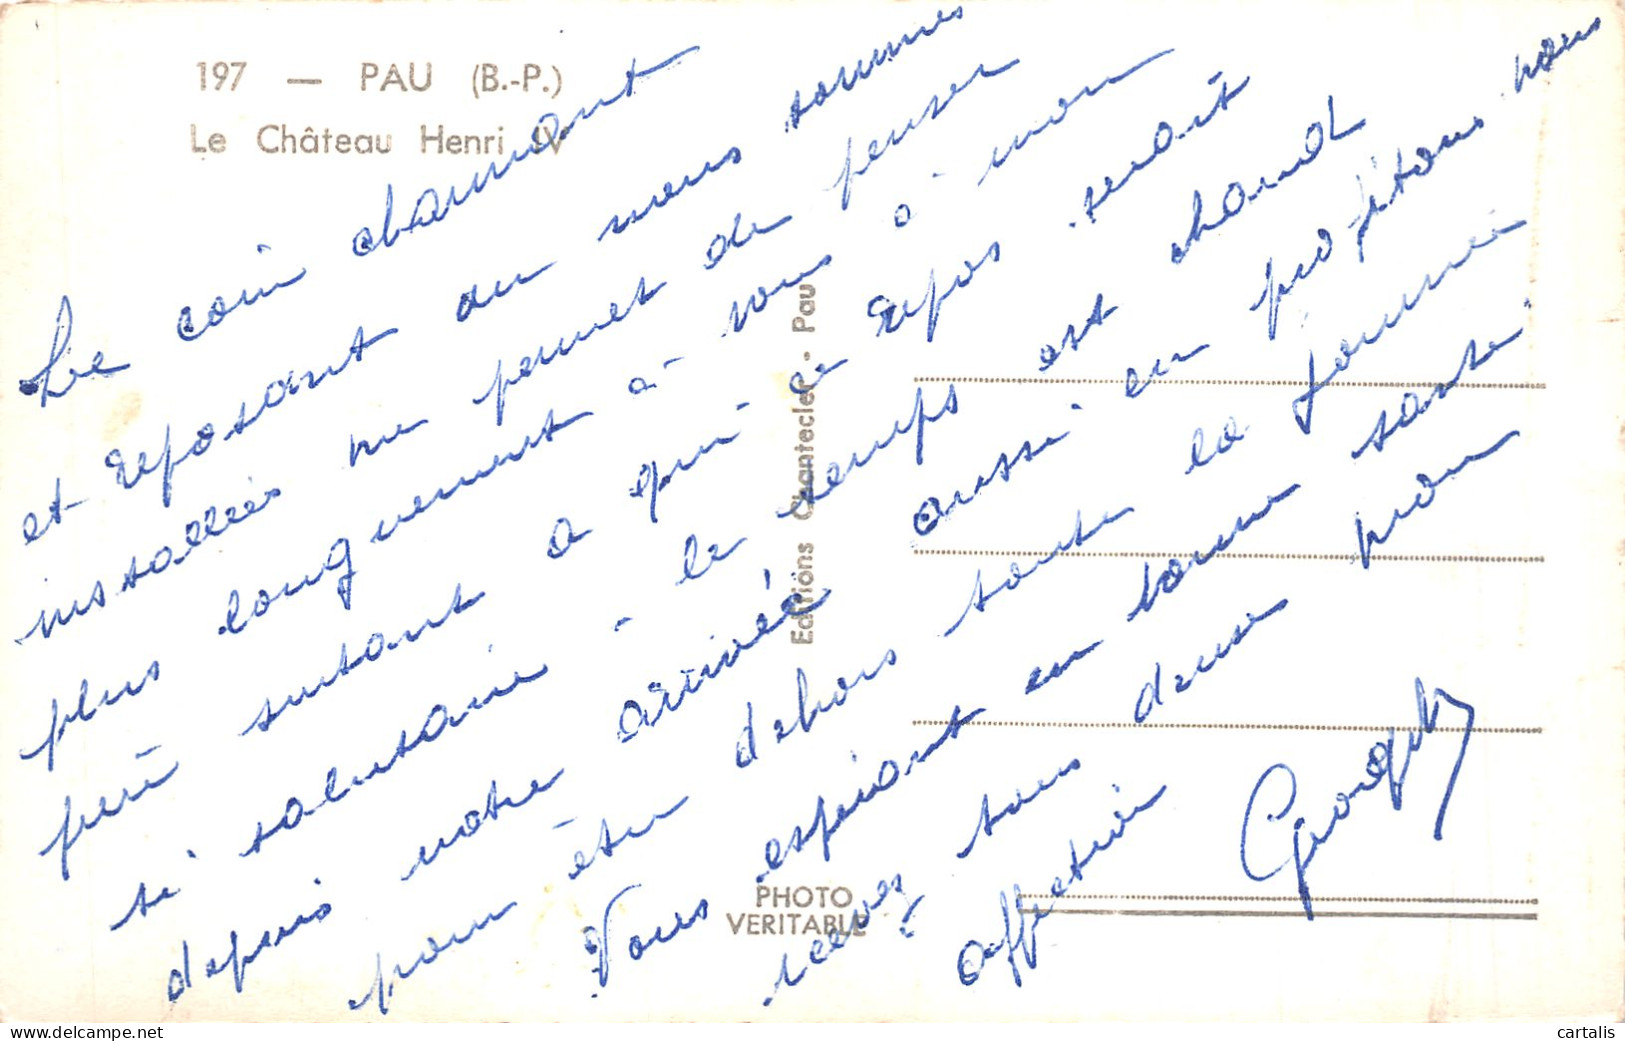 197 — PAU (B.-P.)
Le Château Henri IV
Le coin charmant
et reposant ou nous sommes
installés me permet de penser
plus longuement à vous à mon
père surtout à qui ce repos serait
si salutaire le temps est chaud
depuis notre arrivée aussi en profitons nous
pour être dehors toute la journée
Vous espérant en bonne santé
recevez tous deux mon
affection
Editions Chantecler - Pau
PHOTO
VERITABLE
cartalis
www.delcampe.net/mcm22